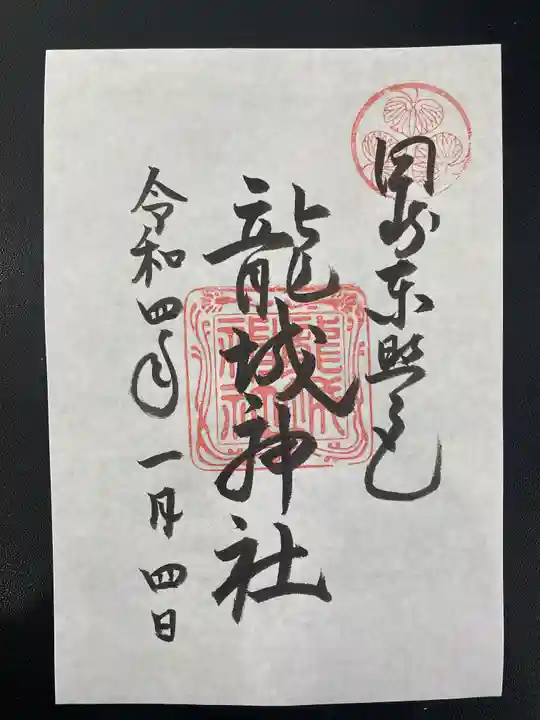 岡崎東照宮
龍城神社
龍城
神社
令和四年一月四日